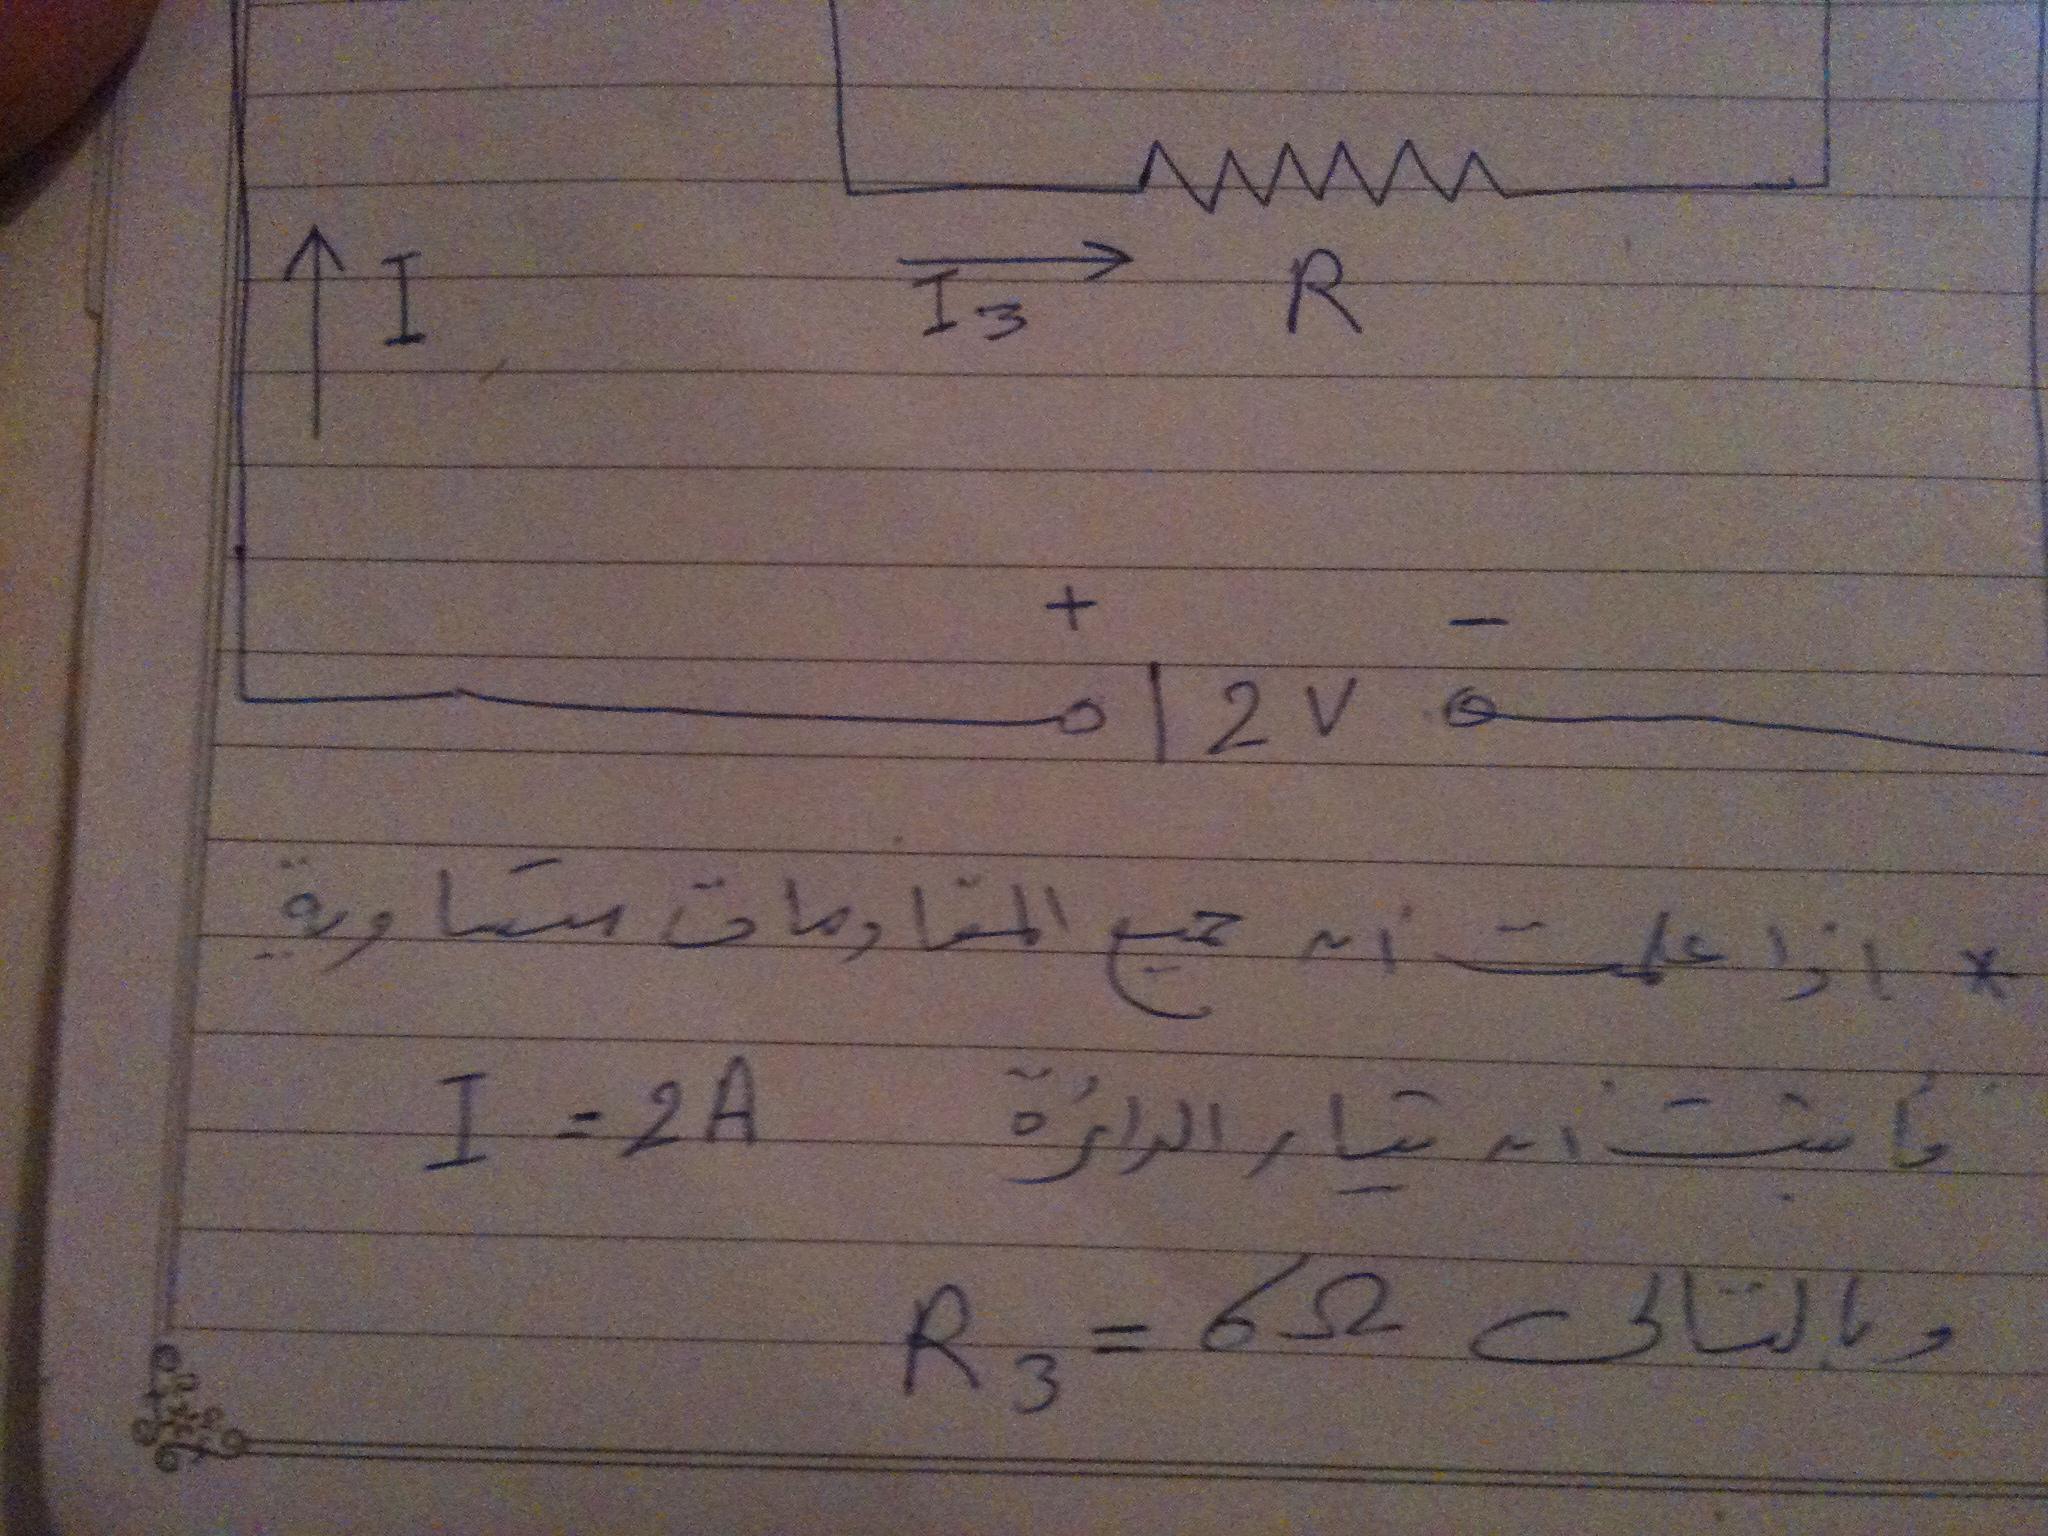 I
I3
R
+ −
12V
* اذا علمت ان جميع المقاومات متساوية
فأثبت ان تيار الدائرة I = 2A
وبالتالى R3 = 6Ω